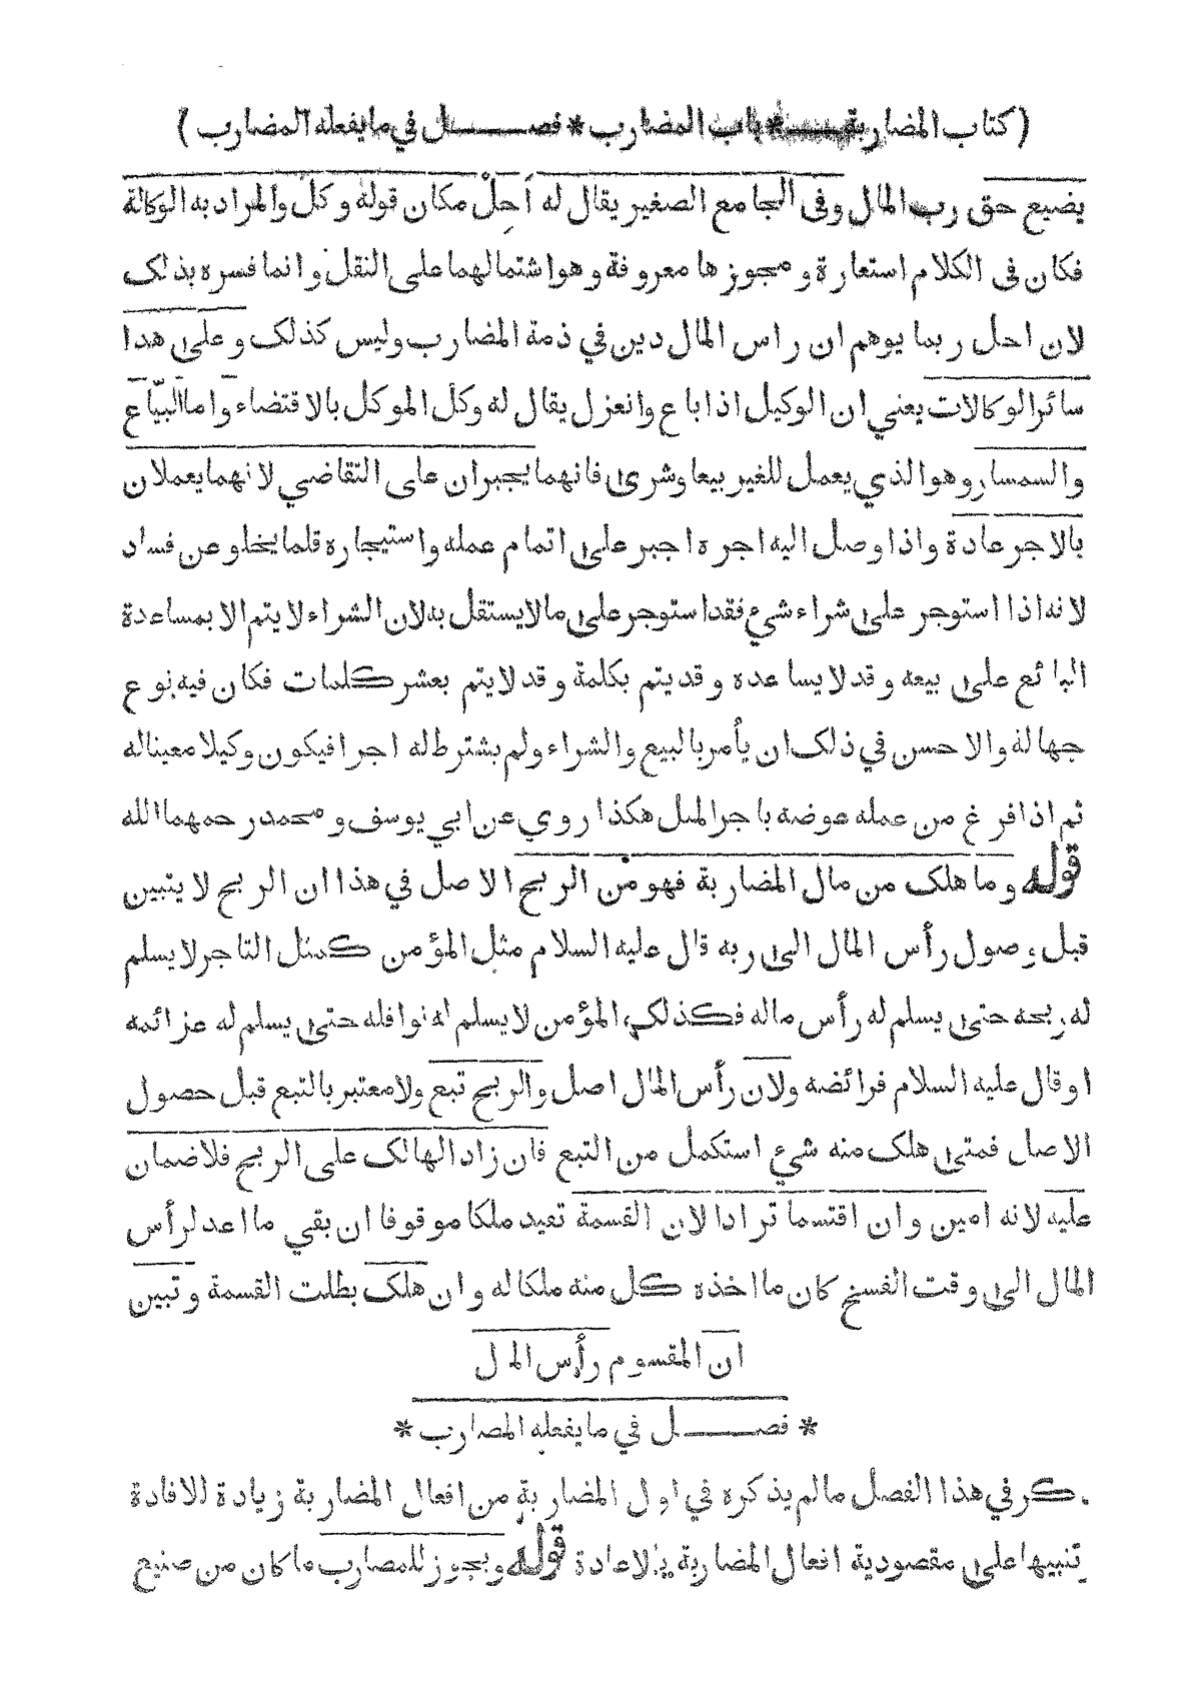 (كتاب المضاربة * باب المضارب * فصل في ما يفعله المضارب)
يضيع حق رب المال وفى الجامع الصغير يقال له أحِلْ مكان قوله وكل والمراد به الوكالة
فكان فى الكلام استعارة ومجوزها معروفة وهو اشتمالهما على النقل وانما فسره بذلك
لان احل ربما يوهم ان راس المال دين في ذمة المضارب وليس كذلك وعلى هذا
سائر الوكالات يعني ان الوكيل اذا باع وانعزل يقال له وكل الموكل بالاقتضاء واما البيّاع
والسمسار وهو الذي يعمل للغير بيعا وشرى فانهما يجبران على التقاضي لانهما يعملان
بالاجر عادة واذا وصل اليه اجره اجبر على اتمام عمله واستيجاره قلما يخلو عن فساد
لانه اذا استوجر على شراء شيء فقد استوجر على ما لا يستقل به لان الشراء لا يتم الا بمساعدة
البائع على بيعه وقد لا يساعده وقد يتم بكلمة وقد لا يتم بعشر كلمات فكان فيه نوع
جهالة والاحسن في ذلك ان يأمر بالبيع والشراء ولم يشترط له اجرا فيكون وكيلا معينا له
ثم اذا فرغ من عمله عوضه باجر المثل هكذا روي عن ابي يوسف ومحمد رحمهما الله
قوله وما هلك من مال المضاربة فهو من الربح الاصل في هذا ان الربح لا يتبين
قبل وصول رأس المال الى ربه قال عليه السلام مثل المؤمن كمثل التاجر لا يسلم
له ربحه حتى يسلم له رأس ماله فكذلك المؤمن لا يسلم له نوافله حتى يسلم له عزائمه
او قال عليه السلام فرائضه ولان رأس المال اصل والربح تبع ولا معتبر بالتبع قبل حصول
الاصل فمتى هلك منه شيء استكمل من التبع فان زاد الهالك على الربح فلا ضمان
عليه لانه امين وان اقتسما ترادا لان القسمة تفيد ملكا موقوفا ان بقي ما اعد لرأس
المال الى وقت الفسخ كان ما اخذه كل منه ملكا له وان هلك بطلت القسمة وتبين
ان المقسوم رأس المال
* فصل في ما يفعله المضارب *
ذكر في هذا الفصل ما لم يذكره في اول المضاربة من افعال المضاربة زيادة للافادة
وتنبيها على مقصودية افعال المضاربة بالاعادة قوله ويجوز للمضارب ما كان من صنيع